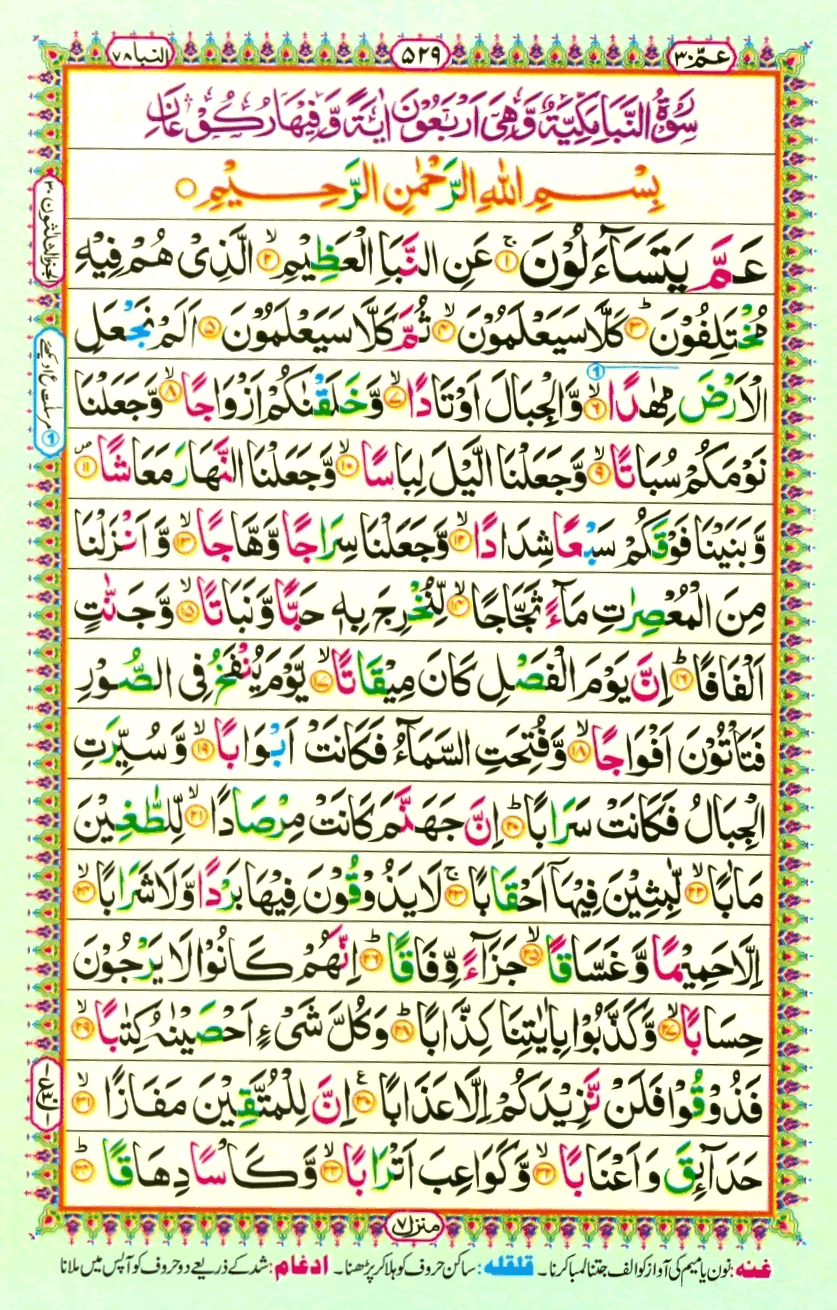 عمّ ٣٠
٥٢٩
النبا ٧٨
سُوْرَةُ النَّبَاِ مَكِّيَّةٌ وَّهِيَ اَرْبَعُوْنَ اٰيَةً وَّفِيْهَا رُكُوْعَانِ
بِسْمِ اللّٰهِ الرَّحْمٰنِ الرَّحِيْمِ ○
عَمَّ يَتَسَآءَلُوْنَ ۚ‏﴿۱﴾ عَنِ النَّبَاِ الْعَظِيْمِ ۙ‏﴿۲﴾ الَّذِىْ هُمْ فِيْهِ
مُخْتَلِفُوْنَ ؕ‏﴿۳﴾ كَلَّا سَيَعْلَمُوْنَ ۙ‏﴿۴﴾ ثُمَّ كَلَّا سَيَعْلَمُوْنَ ‏﴿۵﴾ اَلَمْ نَجْعَلِ
الْاَرْضَ مِهٰدًا ۙ‏﴿۶﴾ وَّالْجِبَالَ اَوْتَادًا ۙ‏﴿۷﴾ وَّخَلَقْنٰكُمْ اَزْوَاجًا ۙ‏﴿۸﴾ وَّجَعَلْنَا
نَوْمَكُمْ سُبَاتًا ۙ‏﴿۹﴾ وَّجَعَلْنَا الَّيْلَ لِبَاسًا ۙ‏﴿۱۰﴾ وَّجَعَلْنَا النَّهَارَ مَعَاشًا ۪‏﴿۱۱﴾
وَّبَنَيْنَا فَوْقَكُمْ سَبْعًا شِدَادًا ۙ‏﴿۱۲﴾ وَّجَعَلْنَا سِرَاجًا وَّهَّاجًا ۙ‏﴿۱۳﴾ وَّاَنْزَلْنَا
مِنَ الْمُعْصِرٰتِ مَآءً ثَجَّاجًا ۙ‏﴿۱۴﴾ لِّنُخْرِجَ بِهٖ حَبًّا وَّنَبَاتًا ۙ‏﴿۱۵﴾ وَّجَنّٰتٍ
اَلْفَافًا ؕ‏﴿۱۶﴾ اِنَّ يَوْمَ الْفَصْلِ كَانَ مِيْقَاتًا ۙ‏﴿۱۷﴾ يَّوْمَ يُنْفَخُ فِى الصُّوْرِ
فَتَاْتُوْنَ اَفْوَاجًا ۙ‏﴿۱۸﴾ وَّفُتِحَتِ السَّمَآءُ فَكَانَتْ اَبْوَابًا ۙ‏﴿۱۹﴾ وَّسُيِّرَتِ
الْجِبَالُ فَكَانَتْ سَرَابًا ؕ‏﴿۲۰﴾ اِنَّ جَهَنَّمَ كَانَتْ مِرْصَادًا ۙ‏﴿۲۱﴾ لِّلطّٰغِيْنَ
مَاٰبًا ۙ‏﴿۲۲﴾ لّٰبِثِيْنَ فِيْهَاۤ اَحْقَابًا ۚ‏﴿۲۳﴾ لَا يَذُوْقُوْنَ فِيْهَا بَرْدًا وَّلَا شَرَابًا ۙ‏﴿۲۴﴾
اِلَّا حَمِيْمًا وَّغَسَّاقًا ۙ‏﴿۲۵﴾ جَزَآءً وِّفَاقًا ؕ‏﴿۲۶﴾ اِنَّهُمْ كَانُوْا لَا يَرْجُوْنَ
حِسَابًا ۙ‏﴿۲۷﴾ وَّكَذَّبُوْا بِاٰيٰتِنَا كِذَّابًا ؕ‏﴿۲۸﴾ وَكُلَّ شَىْءٍ اَحْصَيْنٰهُ كِتٰبًا ۙ‏﴿۲۹﴾
فَذُوْقُوْا فَلَنْ نَّزِيْدَكُمْ اِلَّا عَذَابًا ‏﴿۳۰﴾ ع اِنَّ لِلْمُتَّقِيْنَ مَفَازًا ۙ‏﴿۳۱﴾
حَدَآئِقَ وَاَعْنَابًا ۙ‏﴿۳۲﴾ وَّكَوَاعِبَ اَتْرَابًا ۙ‏﴿۳۳﴾ وَّكَاْسًا دِهَاقًا ؕ‏﴿۳۴﴾
منزل ٧
غنہ: نون یا میم کی آواز کو الف جتنا لمبا کرنا۔ قلقلہ: ساکن حروف کو ہلا کر پڑھنا۔ ادغام: شد کے ذریعے دو حروف کو آپس میں ملانا